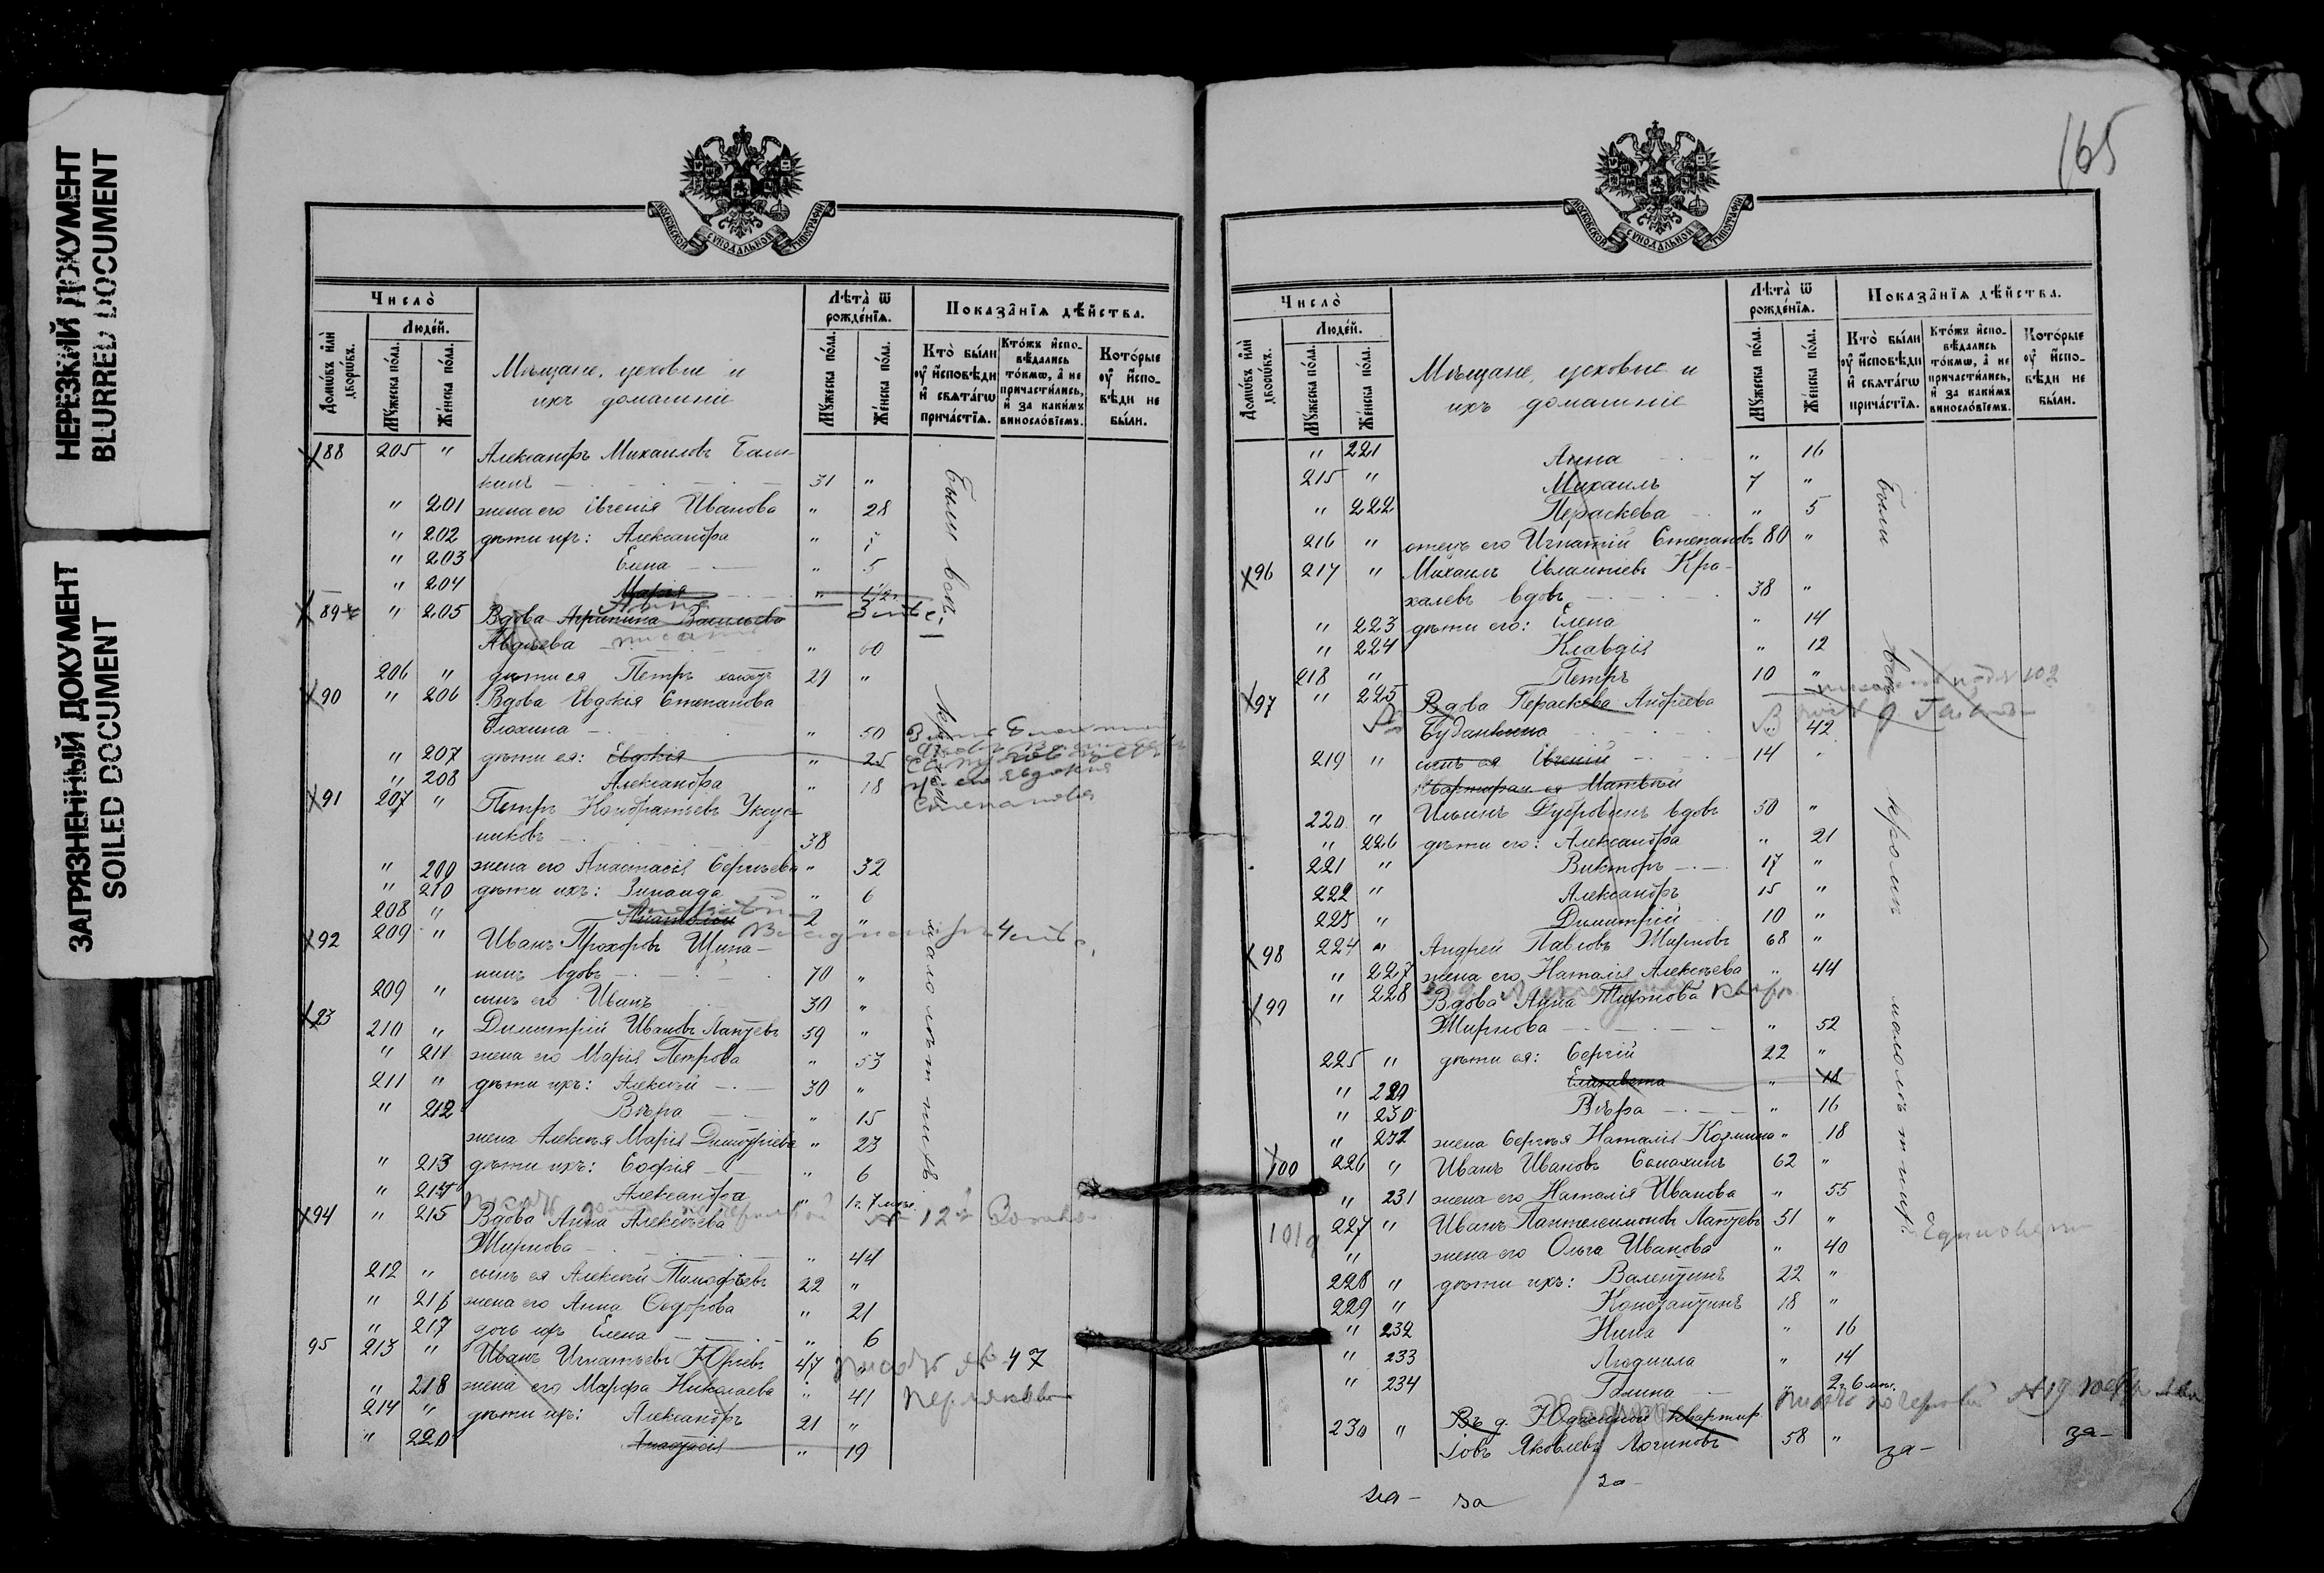 НЕРЕЗКИЙ ДОКУМЕНТ
BLURRED DOCUMENT
ЗАГРЯЗНЕННЫЙ ДОКУМЕНТ
SOILED DOCUMENT
МОСКОВСКОЙ СѴНОДАЛЬНОЙ ТИПОГРАФІИ
Число̀
Люде́й.
Домѡ́въ и҆лѝ дворѡ́въ.
Мꙋ́жеска по́ла.
Же́нска по́ла.
Мѣщане, цеховые и
ихъ домашніе
Лѣ́та ѿ рожде́нїѧ.
Мꙋ́жеска по́ла.
Же́нска по́ла.
Показа̑нїѧ дѣ́йства.
Кто̀ бы́ли оу҆ и҆сповѣ́ди и҆ свѧта́гѡ прича́стїѧ.
Кто́жъ и҆спо-вѣ́дались то́кмѡ, а҆ не причасти́лись, и҆ за каки́мъ винослові́емъ.
Кото́рые оу҆ и҆спо-вѣ́ди не бы́ли.
88 205 " Александръ Михаиловъ Балы-
кинъ 31 "
" 201 жена его Евгенія Иванова " 28
" 202 дѣти ихъ: Александра "
" 203 Елена " 5
" 204 Марія " 1 1/2
89 " 205 Вдова Агрипина Васильева
Авдѣева " 60
206 " дѣти ея Петръ 29 "
90 " 206 Вдова Евдокія Степанова
Блохина " 50
" 207 дѣти ея: Евдокія " 25
" 208 Александра " 18
91 207 " Петръ Кондратьевъ Укус-
никовъ 38
" 209 жена его Анастасія Сергѣева " 32
" 210 дѣти ихъ: Зинаида " 6
208 " Анатолій 2 "
92 209 " Иванъ Прохоровъ Щипа-
нинъ вдовъ 70 "
209 " сынъ его Иванъ 30 "
93 210 " Димитрій Ивановъ Лаптевъ 59 "
" 211 жена его Марія Петрова " 53
211 " дѣти ихъ: Алексѣй 30 "
" 212 Вѣра " 15
жена Алексѣя Марія Димитріева " 23
" 213 дѣти ихъ: Софія " 6
" 214 Александра " 1 г. 7 мѣс.
94 " 215 Вдова Анна Алексѣева
Жирнова " 44
212 " сынъ ея Алексѣй Тимофѣевъ 22 "
" 216 жена его Анна Ѳедорова " 21
" 217 дочь ихъ Елена " 6
95 213 " Иванъ Игнатьевъ Юрьевъ 47
" 218 жена его Марѳа Николаева " 41
214 " дѣти ихъ: Александръ 21 "
" 220 Анастасія " 19
Были всѣ, кромѣ малолѣтнихъ
165
МОСКОВСКОЙ СѴНОДАЛЬНОЙ ТИПОГРАФІИ
Число̀
Люде́й.
Домѡ́въ и҆лѝ дворѡ́въ.
Мꙋ́жеска по́ла.
Же́нска по́ла.
Мѣщане, цеховые и
ихъ домашніе
Лѣ́та ѿ рожде́нїѧ.
Мꙋ́жеска по́ла.
Же́нска по́ла.
Показа̑нїѧ дѣ́йства.
Кто̀ бы́ли оу҆ и҆сповѣ́ди и҆ свѧта́гѡ прича́стїѧ.
Кто́жъ и҆спо-вѣ́дались то́кмѡ, а҆ не причасти́лись, и҆ за каки́мъ винослові́емъ.
Кото́рые оу҆ и҆спо-вѣ́ди не бы́ли.
" 221 Анна " 16
215 " Михаилъ 7 "
" 222 Параскева " 5
216 " отецъ его Игнатій Степановъ 80 "
96 217 " Михаилъ Евлампіевъ Кра-
халевъ вдовъ 38 "
" 223 дѣти его: Елена " 14
" 224 Клавдія " 12
218 " Петръ 10 "
97 " 225 Вдова Параскева Андреева
Буданкина 42
219 " сынъ ея Евгеній 14 "
Квартиран. ея Матвѣй
220 " Ильинъ Дубровинъ вдовъ 50 "
" 226 дѣти его: Александра " 21
221 " Викторъ 17 "
222 " Александръ 15 "
223 " Димитрій 10 "
98 224 " Андрей Павловъ Жирновъ 68 "
" 227 жена его Наталія Алексѣева " 44
99 " 228 Вдова Анна
Жирнова " 52
225 " дѣти ея: Сергій 22 "
" 229 Елизавета " 18
" 230 Вѣра " 16
" 231 жена Сергѣя Наталія Козмина " 18
100 226 " Иванъ Ивановъ Самохинъ 62 "
" 231 жена его Наталія Иванова " 55
101 227 " Иванъ Пантелеимоновъ Лаптевъ 51 "
" жена его Ольга Иванова " 40
228 " дѣти ихъ: Валентинъ 22 "
229 " Константинъ 18 "
" 232 Нина " 16
" 233 Людмила " 14
" 234 Галина " 2 г. 6 мѣс.
230 " Въ д. Юдицкой квартир.
Іовъ Яковлевъ Логиновъ 58 "
были всѣ кромѣ малолѣтних.
за-
за-
за-
за
за-